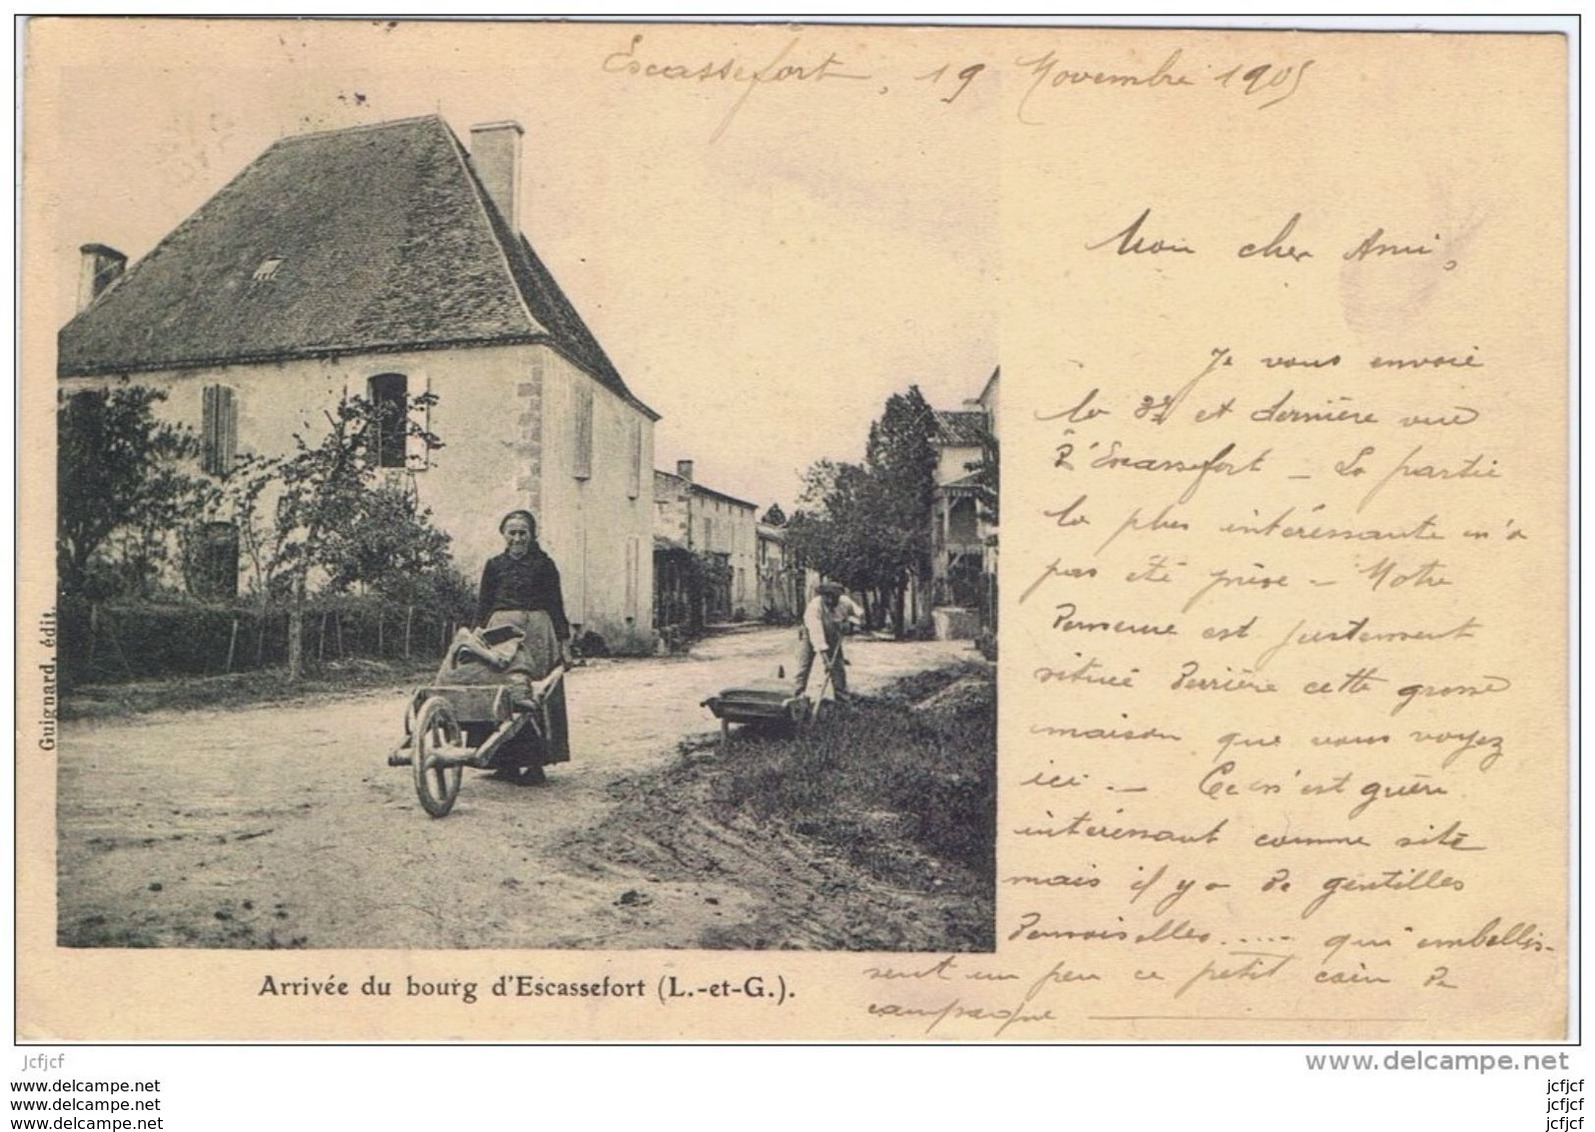 Escassefort, 19 Novembre 1905
Mon cher Ami,
Je vous envoie
la 3e et dernière vue
d'Escassefort – La partie
la plus intéressante n'a
pas été prise – Notre
Demeure est justement
située derrière cette grosse
maison que vous voyez
ici. – Ce n'est guère
intéressant comme site
mais il y a de gentilles
demoiselles..... qui embellis-
sent un peu ce petit coin de
campagne
Guignard, édit.
Arrivée du bourg d'Escassefort (L.-et-G.).
jcfjcf
www.delcampe.net
www.delcampe.net
www.delcampe.net
www.delcampe.net
jcfjcf
jcfjcf
jcfjcf